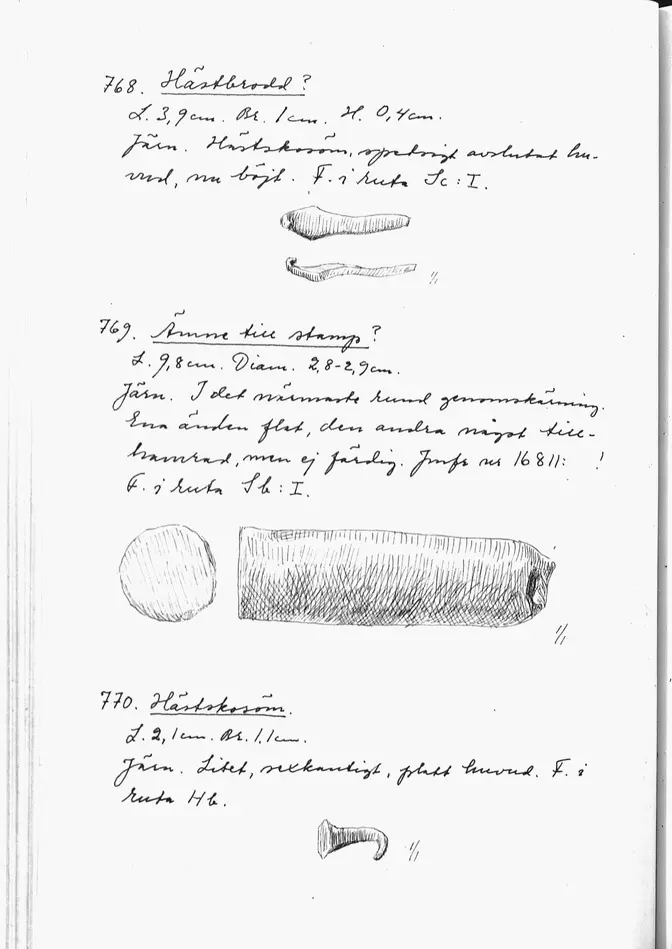 768. Hästbrodd?
L. 3,9 cm. Br. 1 cm. H. 0,4 cm.
Järn. Hästskosöm, spetsigt avslutat hu-
vud, nu böjt. F. i ruta Sc: I.
1/1
769. Ämne till stamp?
L. 9,8 cm. Diam. 2,8-2,9 cm.
Järn. I det närmaste rund genomskärning.
Ena änden flat, den andra något till-
hamrad, men ej färdig. Jmfr nr 16811: !
F. i ruta Sb: I.
1/1
770. Hästskosöm.
L. 2,1 cm. Br. 1,1 cm.
Järn. Litet, sexkantigt, platt huvud. F. i
ruta Hb.
1/1